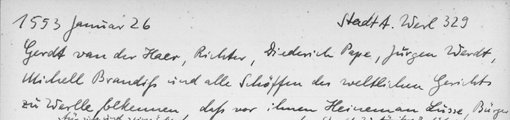 1553 Januar 26 Stadt A. Werl 329
Gerdt van der Haer, Richter, Diederich Pape, Jürgen Werdt,
Michell Brandiß und alle Schöffen des weltlichen Gerichts
zu Werlle bekennen, deß vor ihnen Heineman Lüsse, Bürger